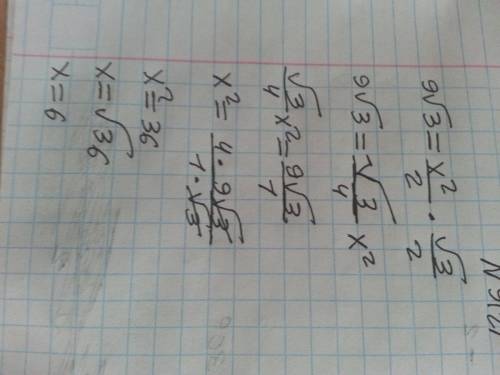 9√3 = x²/2 · √3/2
9√3 = √3/4 x²
√3/4 x² = 9√3/1
x² = 4·9√3/1·√3
x² = 36
x = √36
x = 6